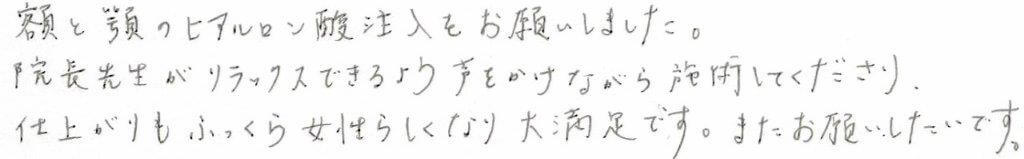 額と顎のヒアルロン酸注入をお願いしました。
院長先生がリラックスできるよう声をかけながら施術してくださり、
仕上がりもふっくら女性らしくなり大満足です。またお願いしたいです。